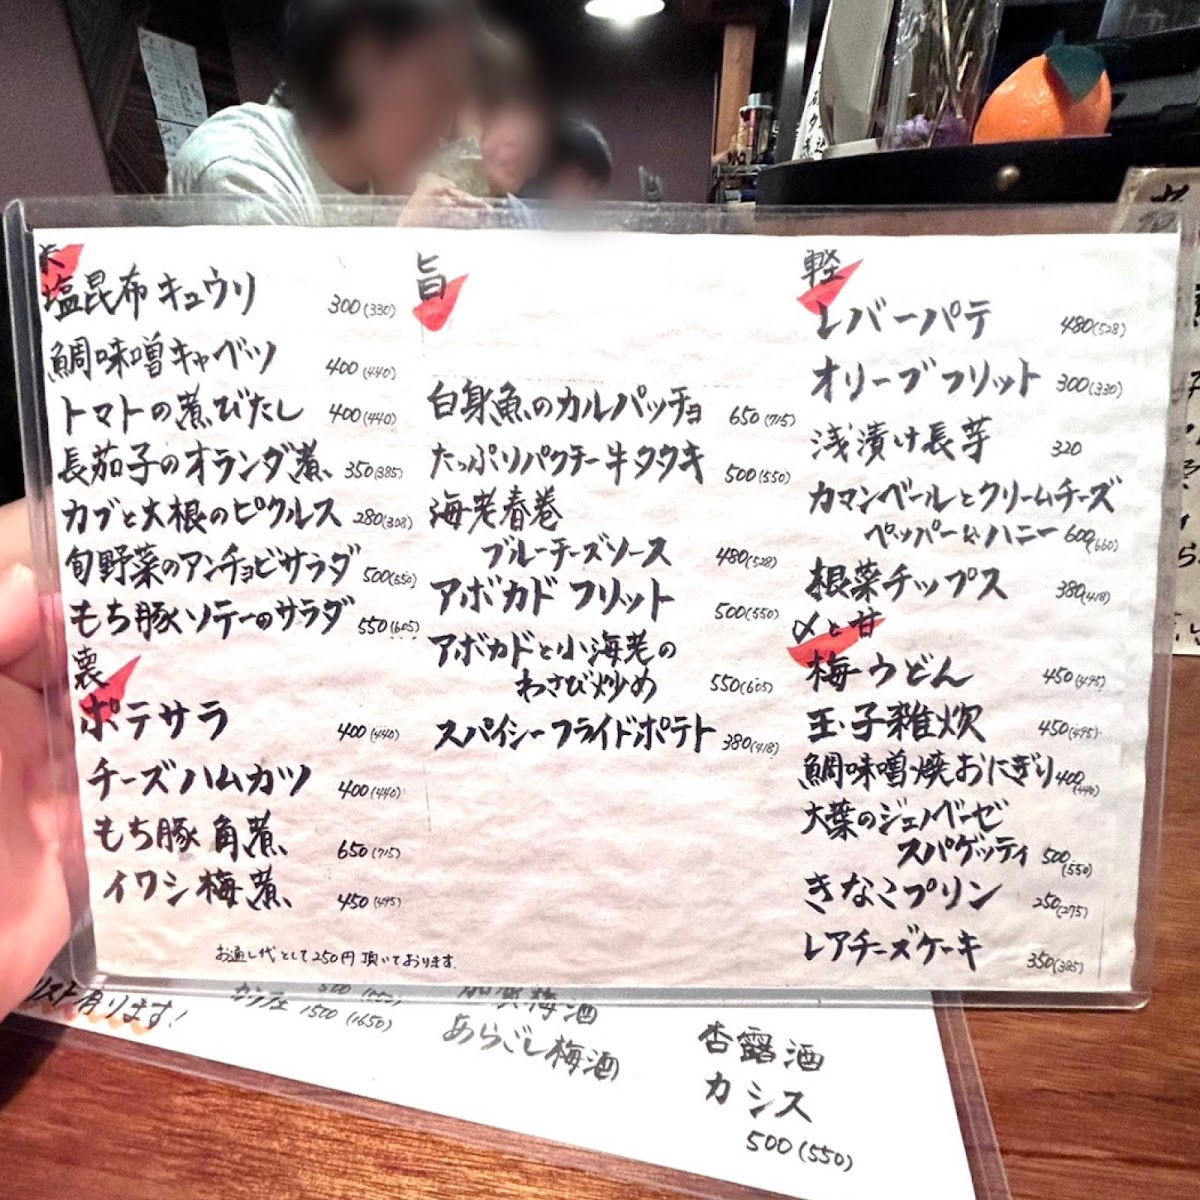 塩昆布キュウリ 300(330)
鯛味噌キャベツ 400(440)
トマトの煮びたし 400(440)
長茄子のオランダ煮 350(385)
カブと大根のピクルス 280(308)
旬野菜のアンチョビサラダ 500(550)
もち豚ソテーのサラダ 550(605)
裏
ポテサラ 400(440)
チーズハムカツ 400(440)
もち豚角煮 650(715)
イワシ梅煮 450(495)
お通し代として250円頂いております。
旨
白身魚のカルパッチョ 650(715)
たっぷりパクチー牛タタキ 500(550)
海老春巻
ブルーチーズソース 480(528)
アボカドフリット 500(550)
アボカドと小海老の
わさび炒め 550(605)
スパイシーフライドポテト 380(418)
軽
レバーパテ 480(528)
オリーブフリット 300(330)
浅漬け長芋 320
カマンベールとクリームチーズ
ペッパー&ハニー 600(660)
根菜チップス 380(418)
〆と甘
梅うどん 450(495)
玉子雑炊 450(495)
鯛味噌焼おにぎり 400(440)
大葉のジェノベーゼ
スパゲッティ 500(550)
きなこプリン 250(275)
レアチーズケーキ 350(385)
リスト有ります!
カラフェ 1500(1650)
500(550)
加賀梅酒
あらごし梅酒
杏露酒
カシス
500(550)